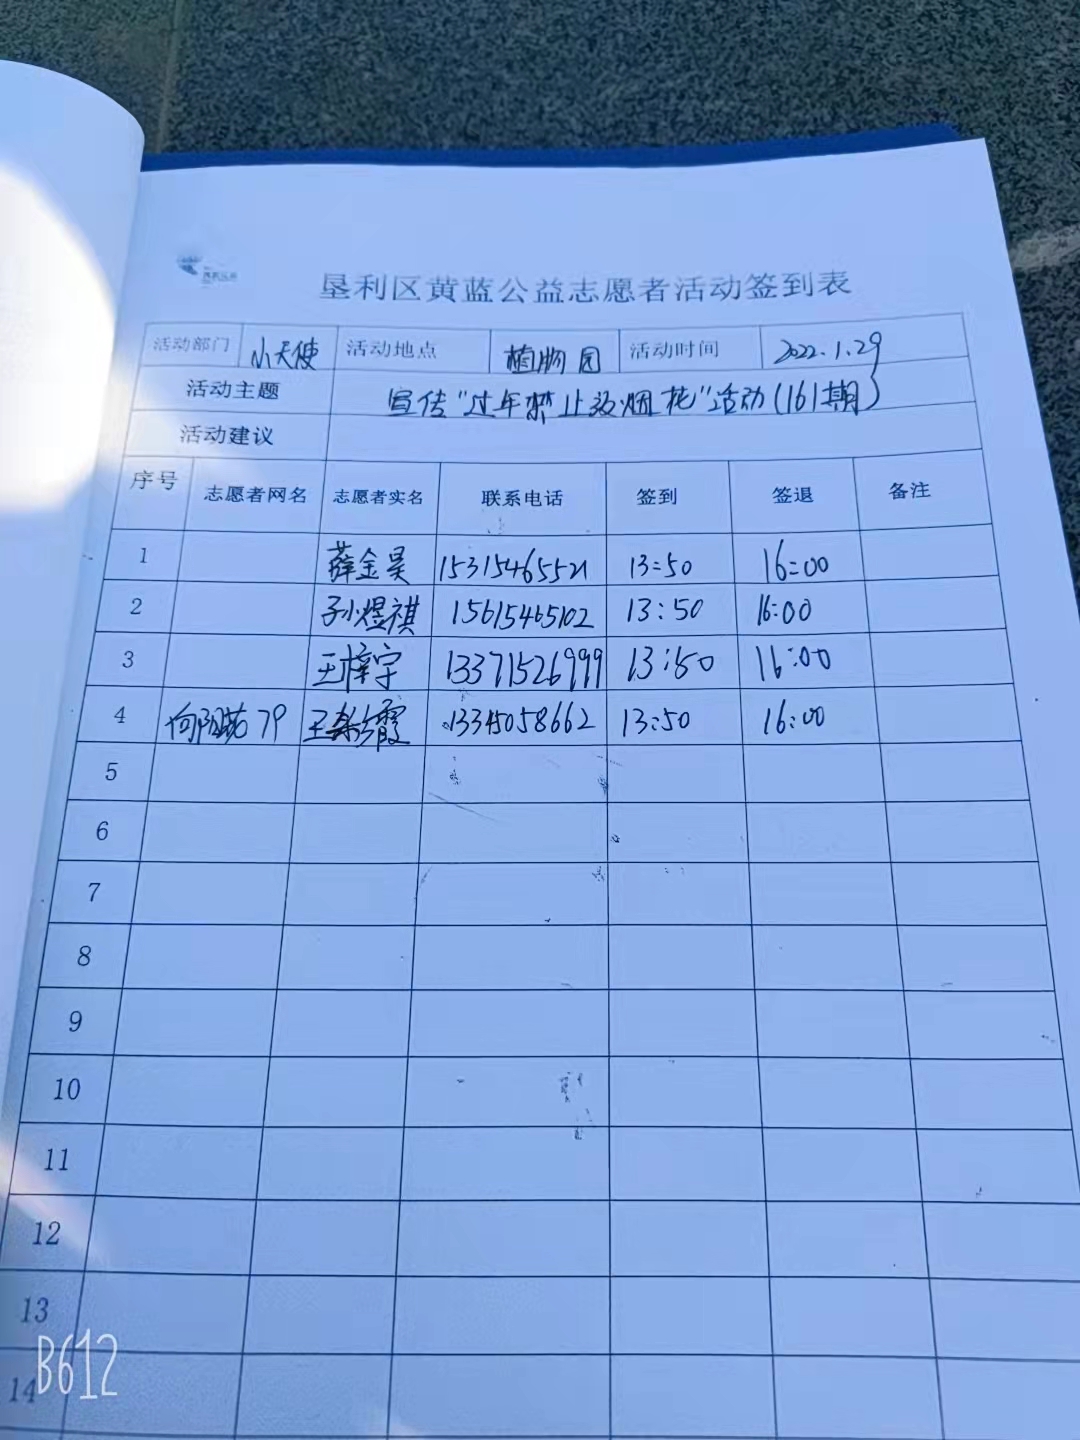 垦利区黄蓝公益志愿者活动签到表
活动部门 小天使 活动地点 植物园 活动时间 2022.1.29
活动主题 宣传“过年禁止放烟花”活动(161期)
活动建议
序号 志愿者网名 志愿者实名 联系电话 签到 签退 备注
1 薛金昊 15315465521 13:50 16:00
2 孙煜祺 15615465102 13:50 16:00
3 王梓宇 13371526999 13:50 16:00
4 79 王 霞 13345058662 13:50 16:00
5
6
7
8
9
10
11
12
13
14
B612